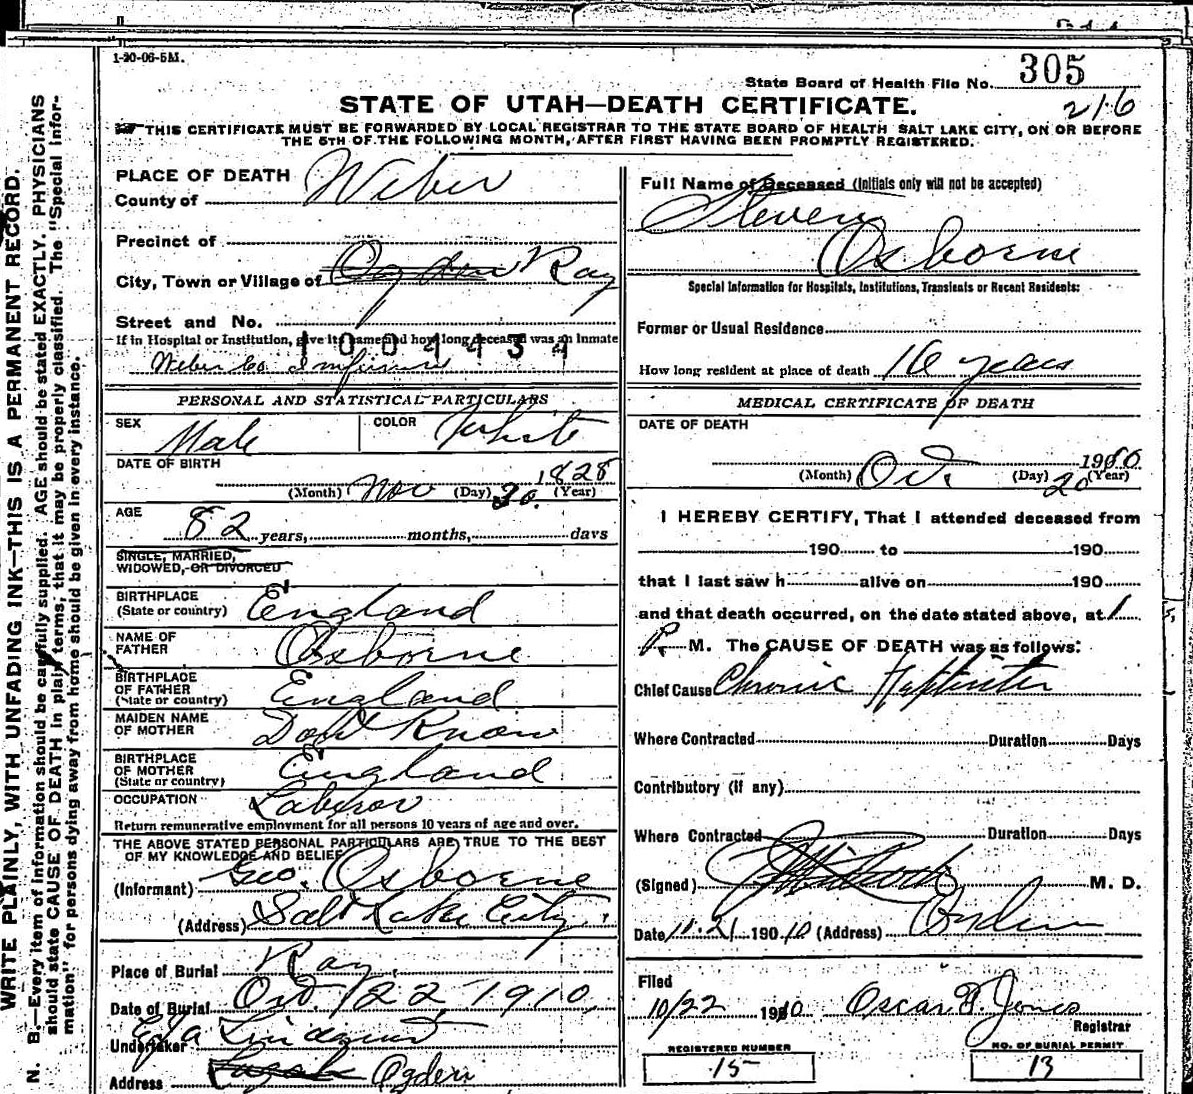 1-20-06-5M.
State Board of Health File No. 305
216
STATE OF UTAH—DEATH CERTIFICATE.
THIS CERTIFICATE MUST BE FORWARDED BY LOCAL REGISTRAR TO THE STATE BOARD OF HEALTH SALT LAKE CITY, ON OR BEFORE
THE 5TH OF THE FOLLOWING MONTH, AFTER FIRST HAVING BEEN PROMPTLY REGISTERED.
WRITE PLAINLY, WITH UNFADING INK—THIS IS A PERMANENT RECORD.
N. B.—Every item of information should be carefully supplied. AGE should be stated EXACTLY. PHYSICIANS
should state CAUSE OF DEATH in plain terms, that it may be properly classified. The "Special Infor-
mation" for persons dying away from home should be given in every instance.
PLACE OF DEATH
County of Weber
Precinct of
City, Town or Village of Ogden Roy
Street and No.
If in Hospital or Institution, give its name and how long deceased was an Inmate
1004434
Weber Co
PERSONAL AND STATISTICAL PARTICULARS
SEX Male COLOR White
DATE OF BIRTH
(Month) Nov (Day) 30. 1828 (Year)
AGE
82 years, months, days
SINGLE, MARRIED,
WIDOWED, OR DIVORCED
BIRTHPLACE
(State or country) England
NAME OF
FATHER Osborne
BIRTHPLACE
OF FATHER
(State or country) England
MAIDEN NAME
OF MOTHER Dont Know
BIRTHPLACE
OF MOTHER
(State or country) England
OCCUPATION Laberor
Return remunerative employment for all persons 10 years of age and over.
THE ABOVE STATED PERSONAL PARTICULARS ARE TRUE TO THE BEST
OF MY KNOWLEDGE AND BELIEF
(Informant) Geo. Osborne
(Address) Salt Lake City.
Place of Burial Roy.
Date of Burial Oct. 22 1910,
Undertaker Lindquist
Address Ogden
Full Name of Deceased (Initials only will not be accepted)
Steven
Osborne
Special Information for Hospitals, Institutions, Transients or Recent Residents:
Former or Usual Residence
How long resident at place of death 16 years
MEDICAL CERTIFICATE OF DEATH
DATE OF DEATH
(Month) Oct. (Day) 20 1910 (Year)
I HEREBY CERTIFY, That I attended deceased from
190 to 190
that I last saw h alive on 190
and that death occurred, on the date stated above, at 1
P. M. The CAUSE OF DEATH was as follows:
Chief Cause Chronic
Where Contracted Duration Days
Contributory (if any)
Where Contracted Duration Days
(Signed) M. D.
Date 10.21 190 10 (Address) Ogden
Filed
10/22 1910 Oscar F. Jones
Registrar
REGISTERED NUMBER
15
NO. OF BURIAL PERMIT
13